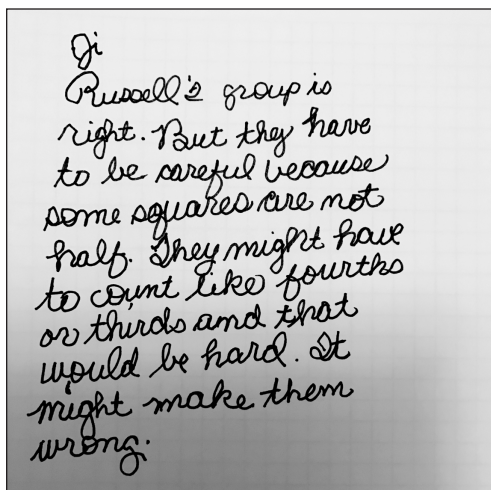 Ji
Russell's group is
right. But they have
to be careful because
some squares are not
half. They might have
to count like fourths
or thirds and that
would be hard. It
might make them
wrong.